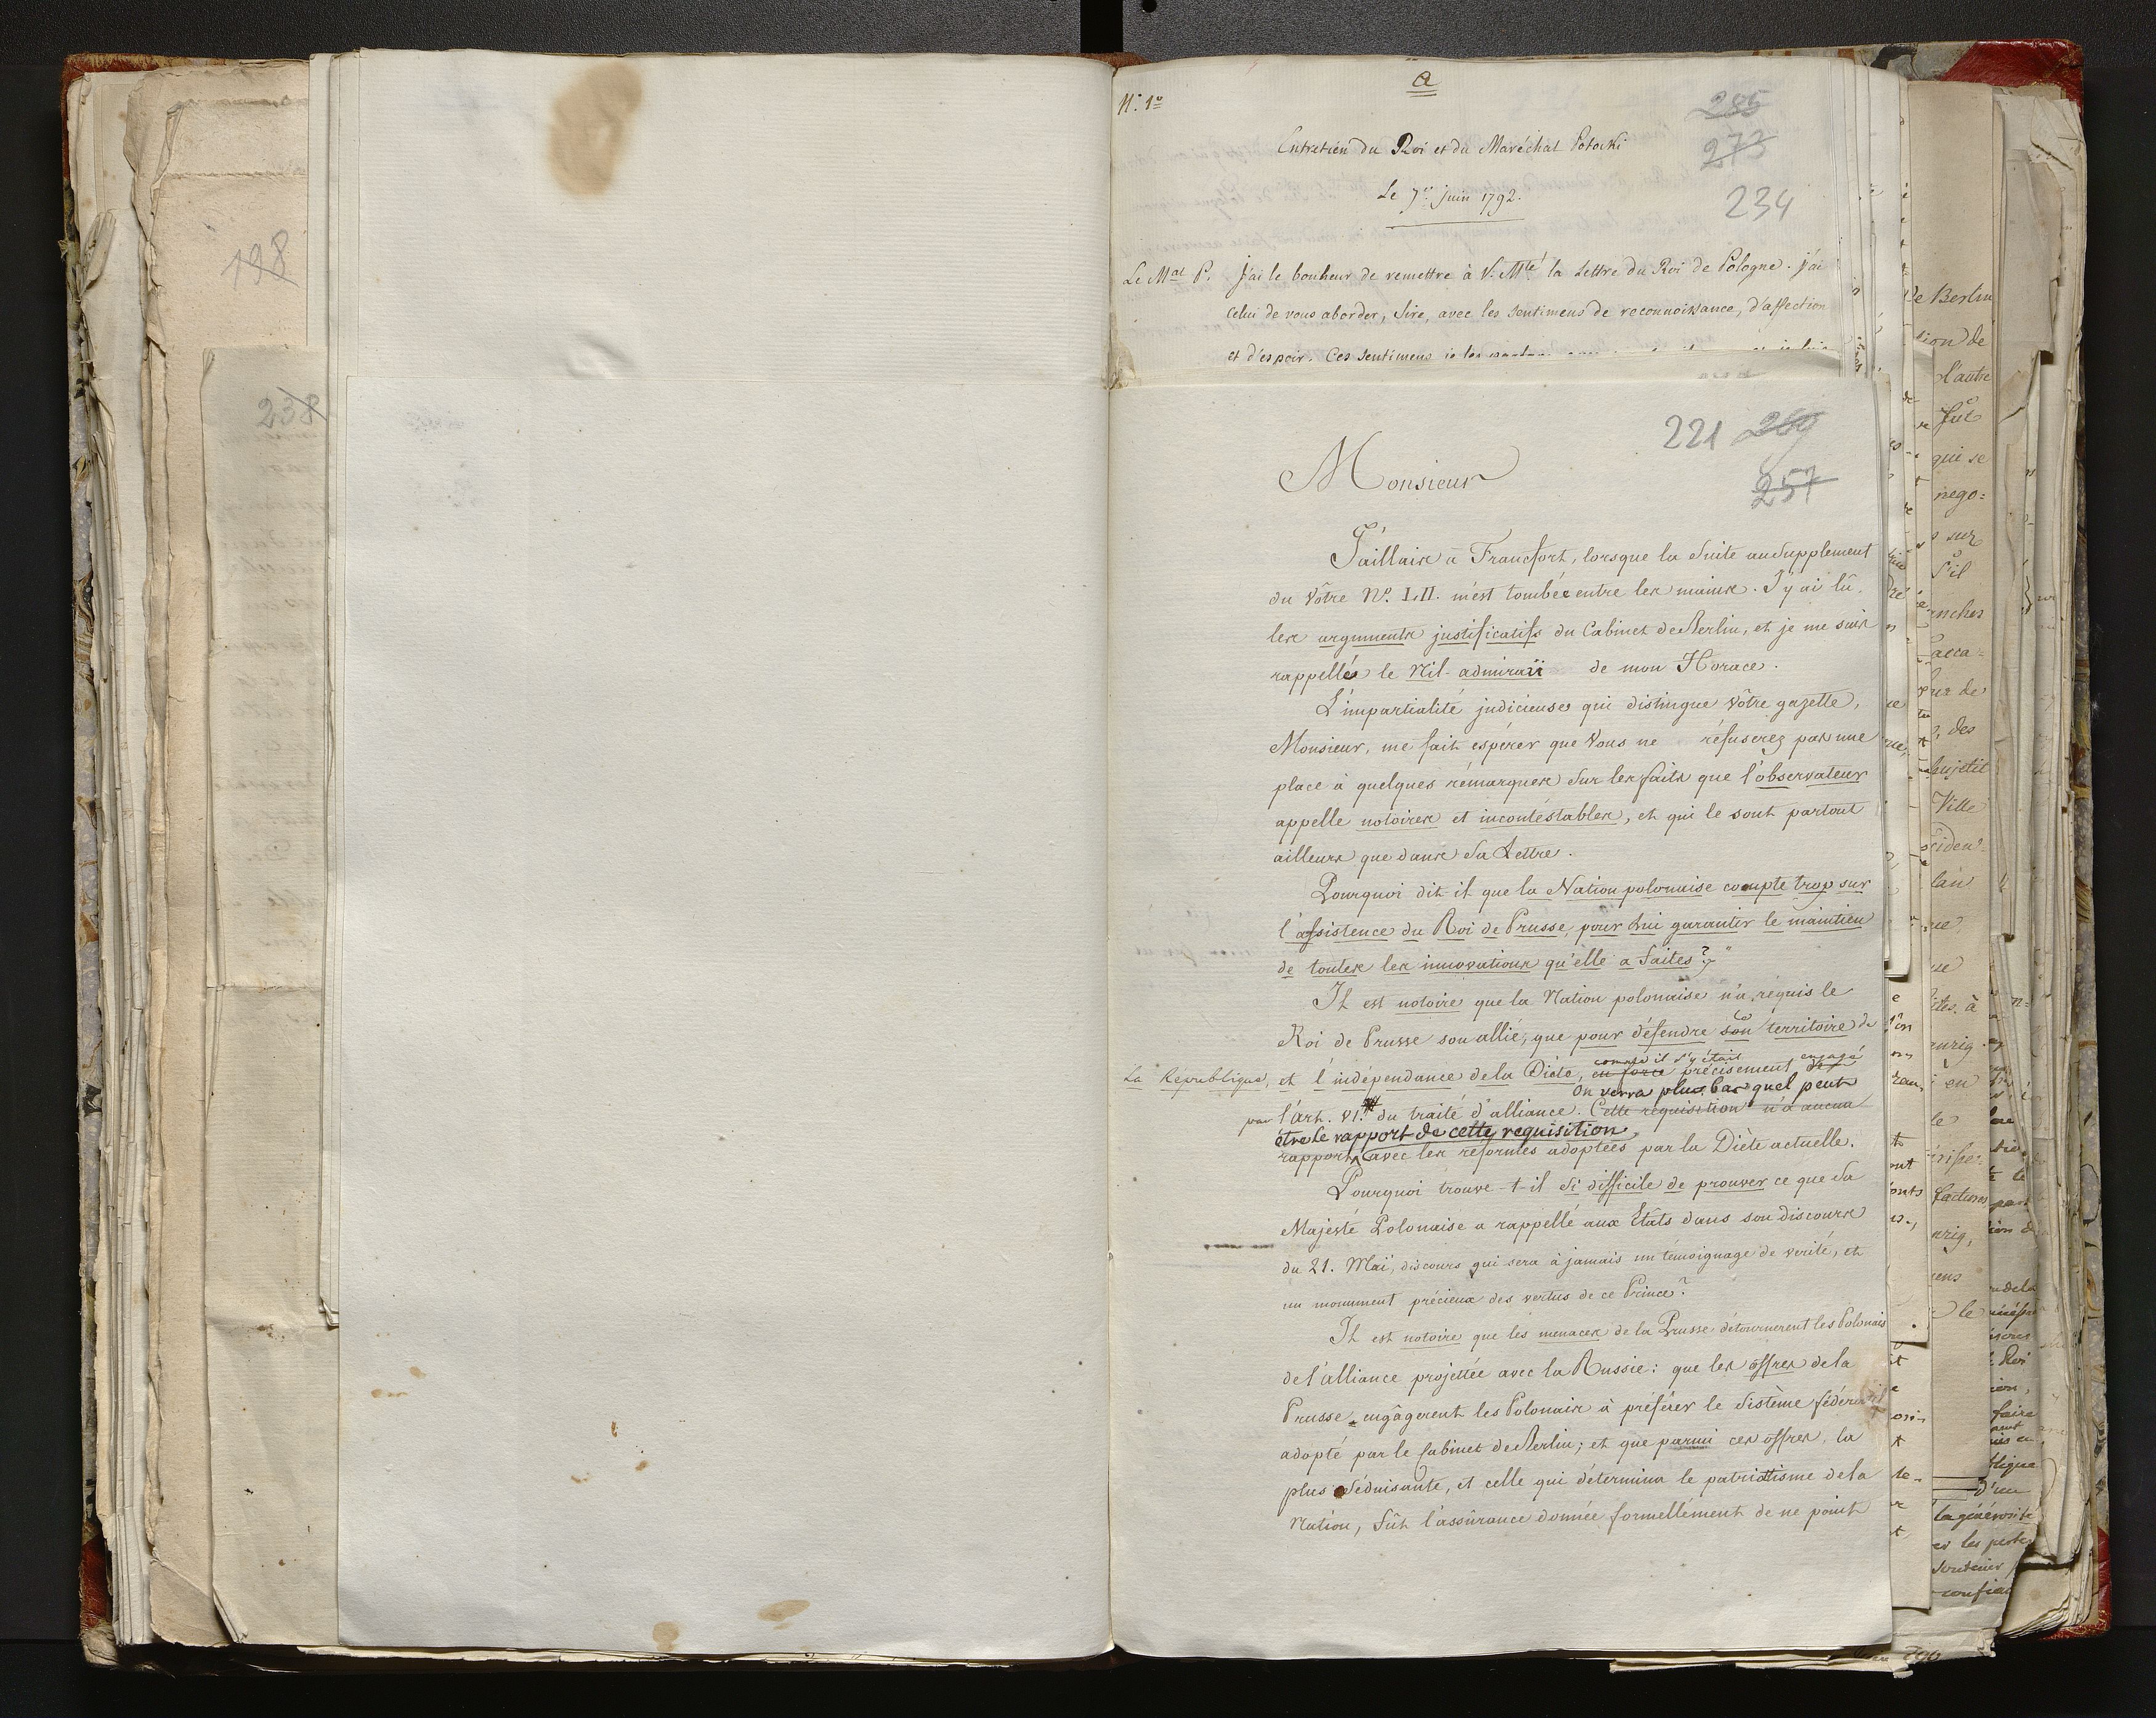 198
238
a
N.° 1°
285
Entretien du Roi et du Maréchal Potocki
273
Le 7 juin 1792.
234
Le Mal P. J'ai le bonheur de remettre à V. Mté la Lettre du Roi de Pologne. j'ai
celui de vous aborder, Sire, avec les sentimens de reconnoissance, d'affection
et d'espoir. Ces sentimens je les
221 269
Monsieur
257
J'aillais à Francfort, lorsque la Suite au Supplement
du Vôtre N°. LII. m'est tombée entre les mains. J'y ai lû,
les arguments justificatifs du Cabinet de Berlin, et je me suis
rappellés le Nil admirari de mon Horace.
L'impartialité judicieuse qui distingue Vôtre gazette,
Monsieur, me fait espérer que Vous ne réfuserez pas une
place à quelques rémarques sur les faits que l'observateur
appelle notoires et incontéstables, et qui le sont partout
ailleurs que dans Sa Lettre.
Pourquoi dit-il que la Nation polonaise compte trop sur
l'assistence du Roi de Prusse, pour lui garantir le maintien
de toutes les innovations qu'elle a faites?"
Il est notoire que la Nation polonaise n'a requis le
Roi de Prusse son allié, que pour défendre son territoire de
comme il s'y était engagé
La République, et l'indépendance de la Diète, en force précisement de
On verra plus bas quel peut
par l'art. VI. du traité d'alliance. Cette requisition n'a aucun
être le rapport de cette requisition
rapport avec les réformes adoptées par la Diète actuelle.
Pourquoi trouve-t-il si difficile de prouver ce que Sa
Majesté Polonaise a rappellé aux Etâts dans son discours
du 21. Maï, discours qui sera à jamais un témoignage de verité, et
un monument précieux des vertus de ce Prince?
Il est notoire que les menaces de la Prusse détournerent les Polonais
de l'alliance projettée avec la Russie: que les offres de la
Prusse engâgerent les Polonais à préférer le Sistème fédératif
adopté par le Cabinet de Berlin; et que parmi ces offres, la
plus séduisante, et celle qui détermina le patriotisme de la
Nation, fût l'assûrance donnée formellément de ne point
de Berlin
tion de
l'autre
fut
qui se
nego=
sur
S'il
anches
acca=
sur de
des
Ville
lan
en
le
factures
urig,
le
faire
d'un
la générosité